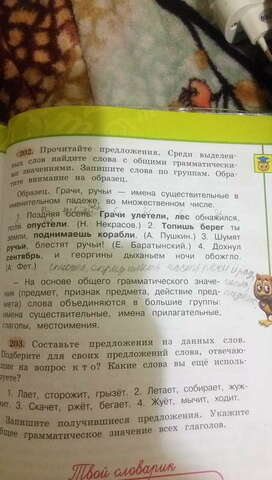 202. Прочитайте предложения. Среди выделен-
ных слов найдите слова с общими грамматически-
ми значениями. Запишите слова по группам. Обра-
тите внимание на образец.
Образец. Грачи, ручьи — имена существительные в
именительном падеже, во множественном числе.
1. Поздняя осень. Грачи улетели, лес обнажился,
поля опустели. (Н. Некрасов.) 2. Топишь берег ты
земли, поднимаешь корабли. (А. Пушкин.) 3. Шумят
ручьи, блестят ручьи! (Е. Баратынский.) 4. Дохнул
сентябрь, и георгины дыханьем ночи обожгло.
(А. Фет.)
– На основе общего грамматического значе-
ния (предмет, признак предмета, действие пред-
мета) слова объединяются в большие группы:
имена существительные, имена прилагательные,
глаголы, местоимения.
203. Составьте предложения из данных слов.
Подберите для своих предложений слова, отвечаю-
щие на вопрос кто? Какие слова вы ещё исполь-
зуете?
1. Лает, сторожит, грызёт. 2. Летает, собирает, жуж-
жит. 3. Скачет, ржёт, бегает. 4. Жуёт, мычит, ходит.
Запишите получившиеся предложения. Укажите
общее грамматическое значение всех глаголов.
Твой словарик